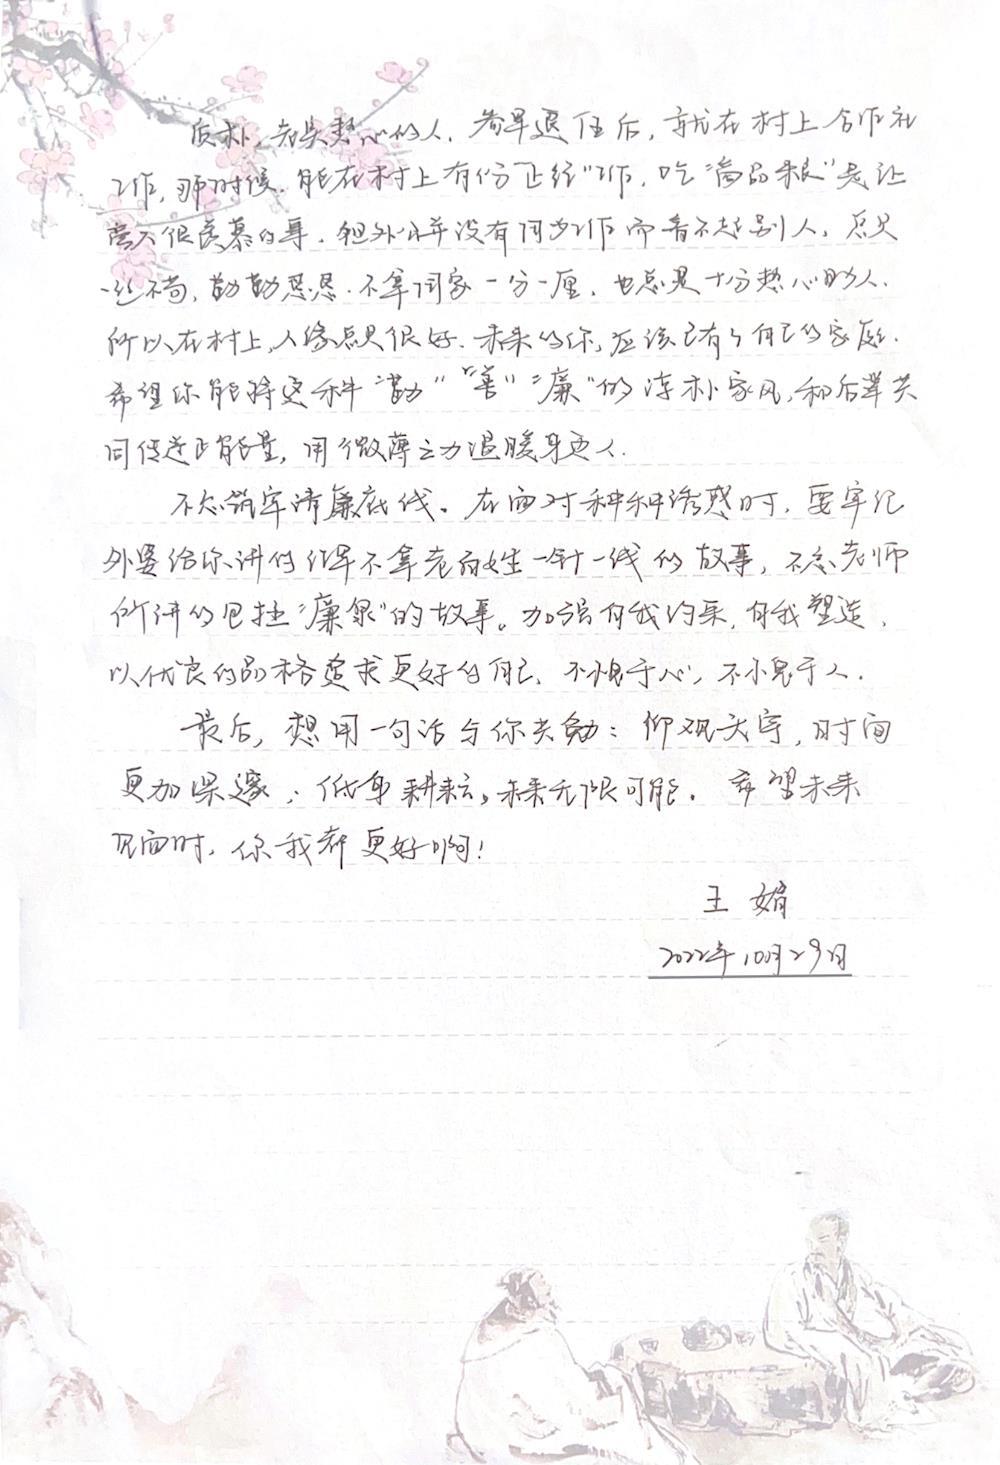 质朴、老实热心的人. 爷早退伍后, 就在村上合作社
工作, 那时候. 能在村上有份"正经"工作, 吃"商品粮"是让
旁人很羡慕的事. 但外公并没有因为工作而看不起别人, 总是
一丝不苟, 勤勤恳恳. 不拿国家一分一厘, 也总是十分热心助人.
所以在村上, 人缘总是很好. 未来的你, 应该已有了自己的家庭.
希望你能将这种"勤""善""廉"的淳朴家风, 和后辈共
同传递正能量, 用微薄之力温暖身边人.
不忘筑牢清廉底线。在面对种种诱惑时, 要牢记
外婆给你讲的红军不拿老百姓一针一线的故事, 不忘老师
所讲的包拯"廉泉"的故事。加强自我约束, 自我塑造,
以优良的品格追求更好的自己, 不愧于心, 不愧于人.
最后, 想用一句话与你共勉: 仰观天宇, 时间
更加深邃; 低身耕耘, 未来无限可能. 希望未来
见面时, 你我都更好啊!
王娟
2022年10月29日